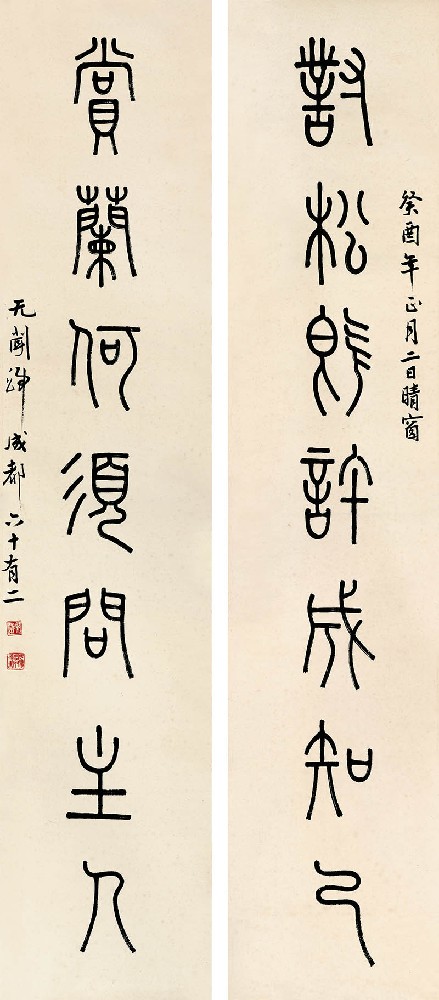 癸酉年正月二日晴窗
對松即許成知己
賞蘭何須問主人
无聞 成都 六十有二